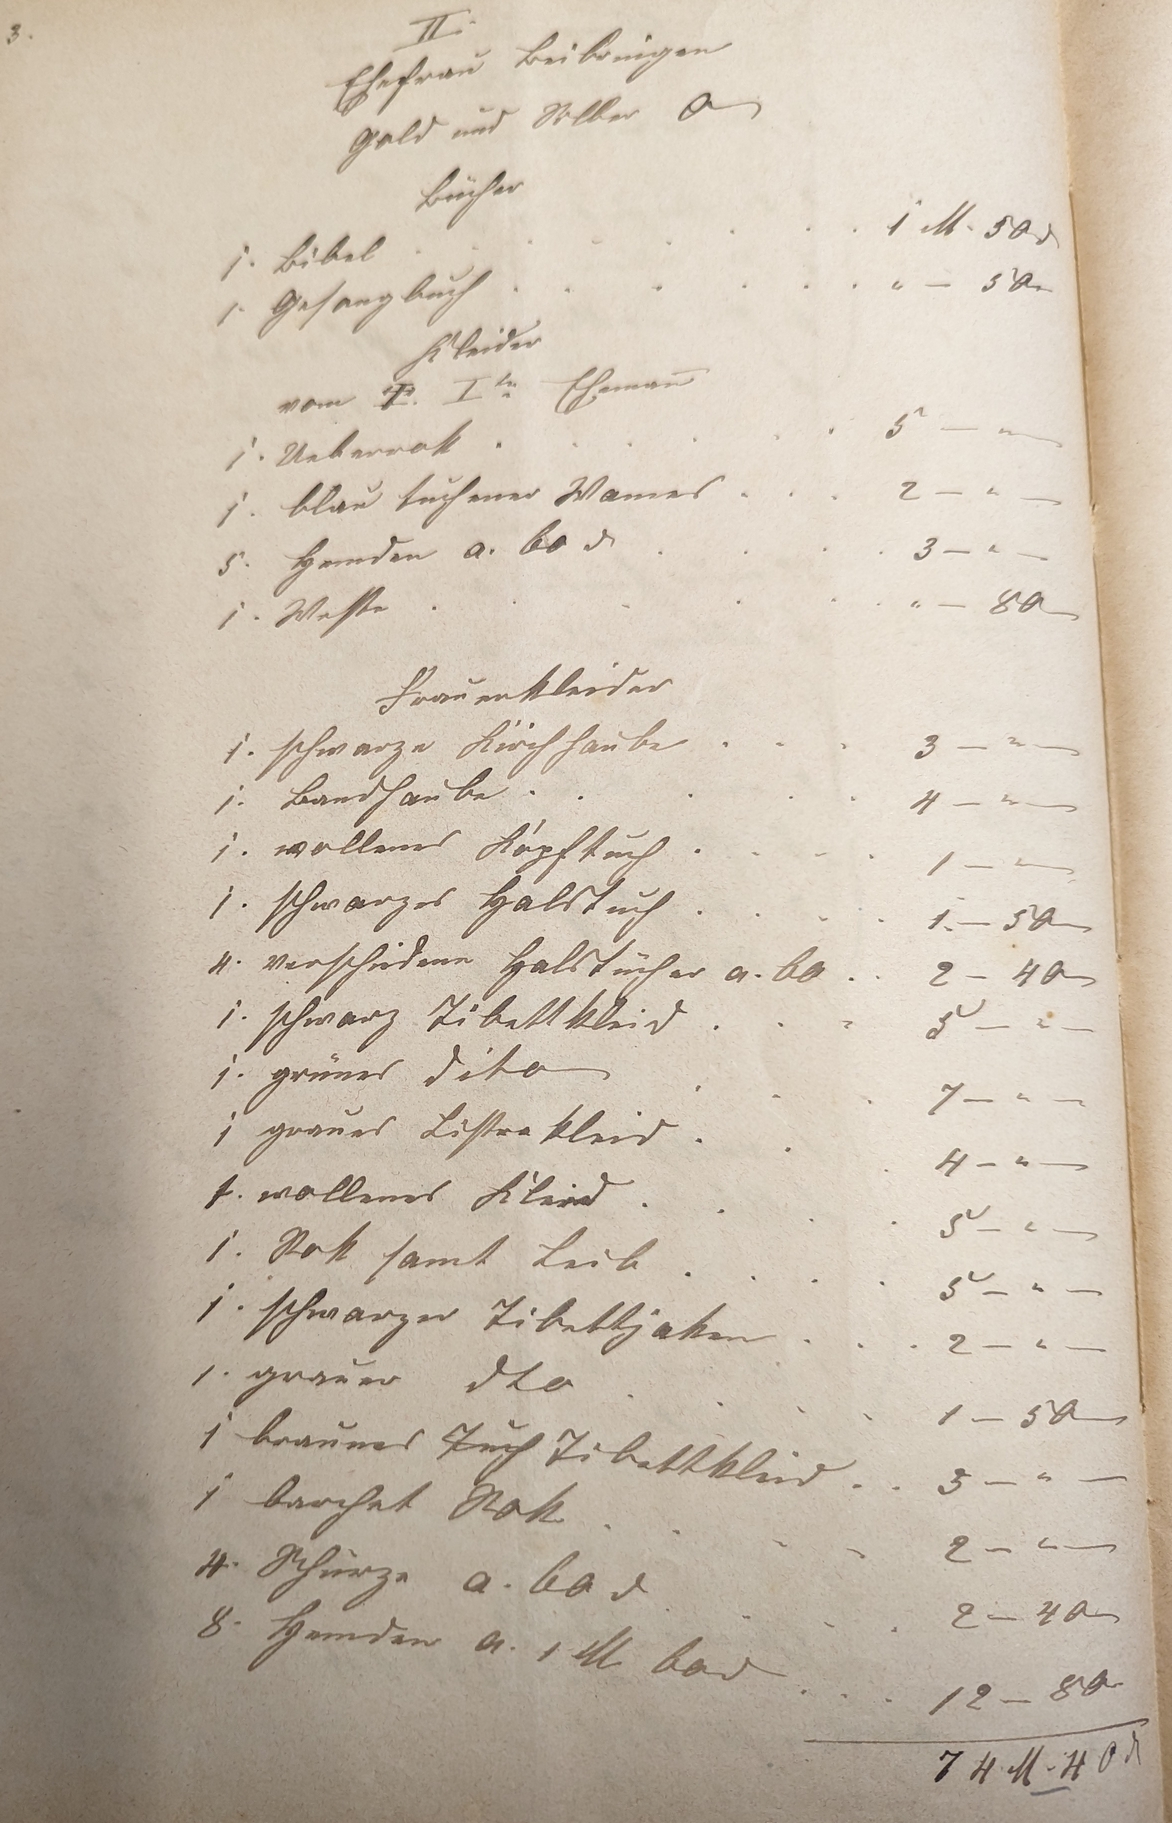 3.
II.
Ehefrau Beibringen
Gold und Silber 0
Bücher
1. Bibel . . . . . . . 1 M. 50 d
1. Gesangbuch . . . . . . " — 50
Kleider
vom I. Iten Ehemañ
1. Ueberrok . . . . . . 5 — " —
1. blau tuchener Wames . . . 2 — " —
5. Hemden a. 60 d . . . . 3 — " —
1. Weste . . . . . . " — 80
Frauenkleider
1. schwarze Kirchhaube . . . 3 — " —
1. Bandhaube . . . . . 4 — " —
1. wollenes Kopftuch . . . . 1 — " —
1. schwarzes Halstuch . . . . 1. — 50
4. verschidene Halstücher a. 60 . . 2 — 40
1. schwarz Tibettkleid . . . 5 — " —
1. grünes dito . . . 7 — " —
1 graues Listrekleid . . . 4 — " —
1. wollenes Kleid . . . . 5 — " —
1. Rok samt Leib . . . . 5 — " —
1. schwarzer Tibettjaken . . . 2 — " —
1. grauer dto . . . . 1 — 50
1 braunes Tuch Tibettkleid . . 3 — " —
1 barchet Rok . . . . 2 — " —
4. Schürze a. 60 d . . . 2 — 40
8. Hemden a. 1 M 60 d . . . 12 — 80
74 M. 40 d